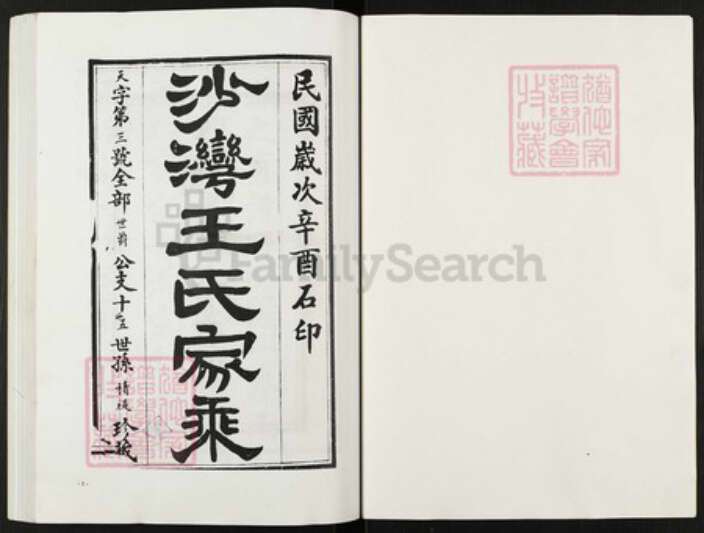 民國歲次辛酉石印
沙灣王氏家乘
天字第三號全部 世 公支十五世孫 珍藏
FamilySearch